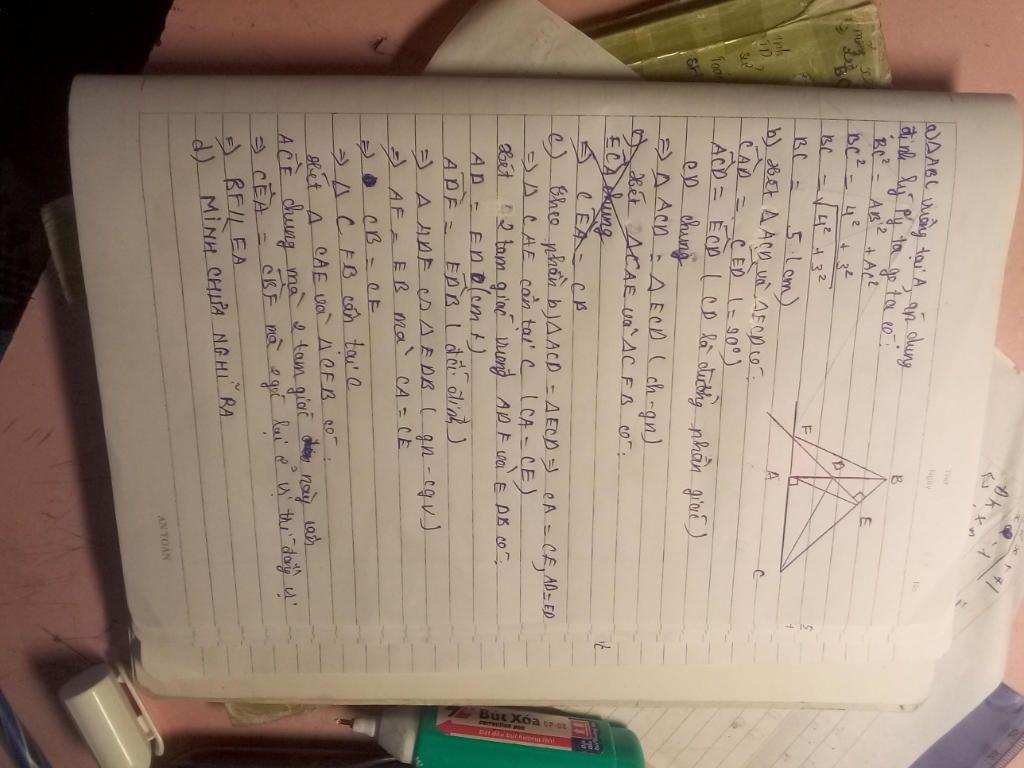 a) ΔABC vuông tại A, áp dụng
định lý py ta go ta có:
BC² = AB² + AC²
BC² = 4² + 3²
BC = √4² + 3²
BC = 5 (cm)
b) Xét ΔACD và ΔECD có:
CAD = CED (= 90°)
ACD = ECD (CD là đường phân giác)
CD chung
=> ΔACD = ΔECD (ch-gn)
c) Xét ΔCAE và ΔCFB có:
ECA chung
=> CEA = CB
c) Theo phần b) ΔACD = ΔECD => CA = CE, AD=ED
=> ΔCAE cân tại C (CA = CE)
Xét 2 tam giác vuông ADF và EDB có:
AD = ED (cmt)
ADF = EDB (đối đỉnh)
=> ΔADF ∽ ΔEDB (gn-cgv)
=> AF = EB mà CA = CE
=> CB = CF
=> ΔCFB cân tại C
Xét ΔCAE và ΔCFB có:
ACE chung mà 2 tam giác này cân
=> CEA = CBF mà 2 góc lại ở vị trí đồng vị
=> BF // EA
d) MÌNH CHƯA NGHĨ RA
B
E
D
F
A
C
Thứ
Ngày
AN TOÀN
Bút Xóa
correction pen
CP-02